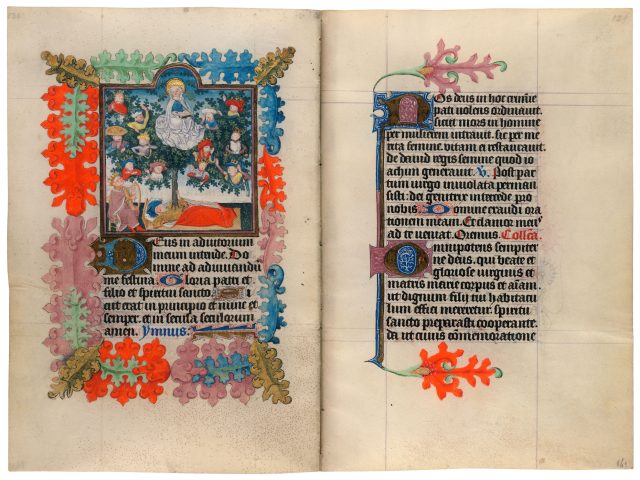 Deus in adiutorium
meum intende. Do
mine ad adiuuandu
me festina. Gloria patri et
filio et spiritui sancto. S
icut erat in principio et nunc et
semper. et in secula seculorum
amen. Ymnus.
Nos deus in hoc crimine
pati nolens ordinauit.
sicut mors in homine
per mulierem intrauit. sic per me
rita femine. vitam et restaurauit.
de dauid regis semine quod io
achim generauit. V. Post par
tum uirgo inuiolata perman
sisti. dei genitrix intercede pro
nobis. Domine exaudi ora
tionem meam. Et clamor meus
ad te ueniat. Oremus. Collecta.
Omnipotens sempiter
ne deus. qui beate et
gloriose uirginis et
matris marie corpus et aiam
ut dignum filij tui habitacu
lum effici mereretur. spiritu
sancto preparasti cooperante.
da ut cuius comemoratione